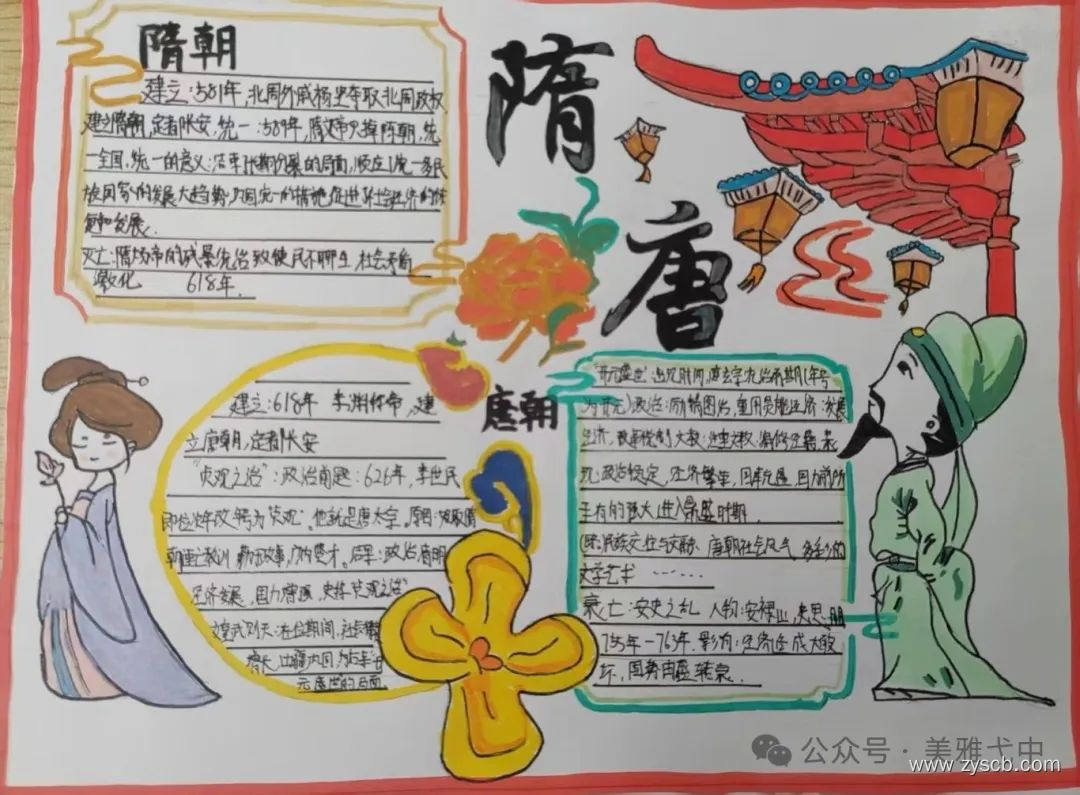 隋唐
隋朝
建立:581年,北周外戚杨坚夺取北周政权
建立隋朝,定都长安,统一:589年,隋文帝灭掉陈朝,统
一全国,统一的意义:结束长期分裂的局面,顺应了统一多民
族国家的发展大趋势,巩固统一的措施促进社会经济的恢
复和发展.
灭亡:隋炀帝的残暴统治致使民不聊生,社会矛盾
激化 618年.
唐朝
建立:618年 李渊称帝,建
立唐朝,定都长安
“贞观之治”:政治前题:626年,李世民
即位次年改年号为“贞观”.他就是唐太宗。原因:吸取隋
朝 教训,勤于政事,广纳贤才。结果:政治清明
经济发展,国力增强,史称“贞观之治”
武则天:在位期间,社会
增长,边疆 固,为后年开
元盛世的局面
“开元盛世”出现时间,唐玄宗统治前期(年号
为开元)政治:励精图治,重用贤能经济:发展
经济,改革税制 文教:注重文教,编修经籍.表
现:政治稳定,经济繁荣,国库充盈,国力前所
未有的强大进入鼎盛时期.
民族交往与交融.唐朝社会风气,多彩的
文学艺术 ……
衰亡:安史之乱 人物:安禄山,史思明
755年-763年.影响:经济造成大破
坏,国势由盛转衰.
公众号·美雅弋中
www.zyscb.com